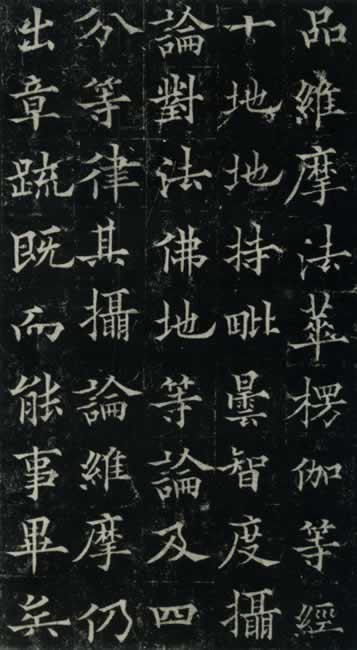 品維摩法華楞伽等經
十地地持毗曇智度攝
論對法佛地等論及四
分等律其攝論維摩仍
出章疏既而能事畢矣